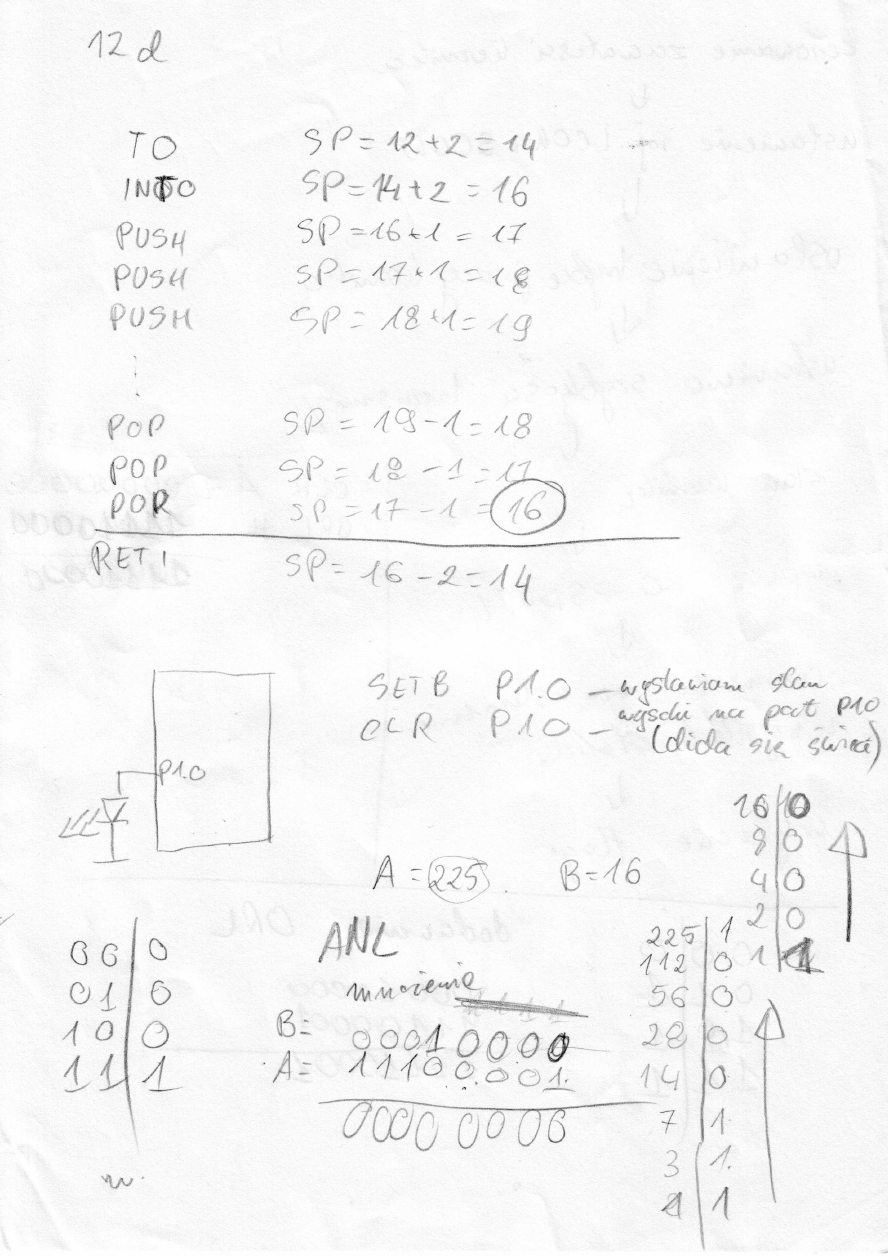 12d
TO SP = 12+2 = 14
INTO SP = 14+2 = 16
PUSH SP = 16+1 = 17
PUSH SP = 17+1 = 18
PUSH SP = 18+1 = 19
⋮
POP SP = 19-1 = 18
POP SP = 18-1 = 17
POP SP = 17-1 = 16
RETI SP = 16-2 = 14
SETB P1.0 – wystawiam stan
wysoki na port P10
CLR P10 – (dioda się świeci)
P1.0
A = 225 B = 16
16 | 0
8 | 0
4 | 0
2 | 0
1 | 1
ANL
mnożenie
0 0 | 0
0 1 | 0
1 0 | 0
1 1 | 1
B = 0001 0000
A = 1110 0001
0000 0000
225 | 1
112 | 0
56 | 0
28 | 0
14 | 0
7 | 1
3 | 1
1 | 1